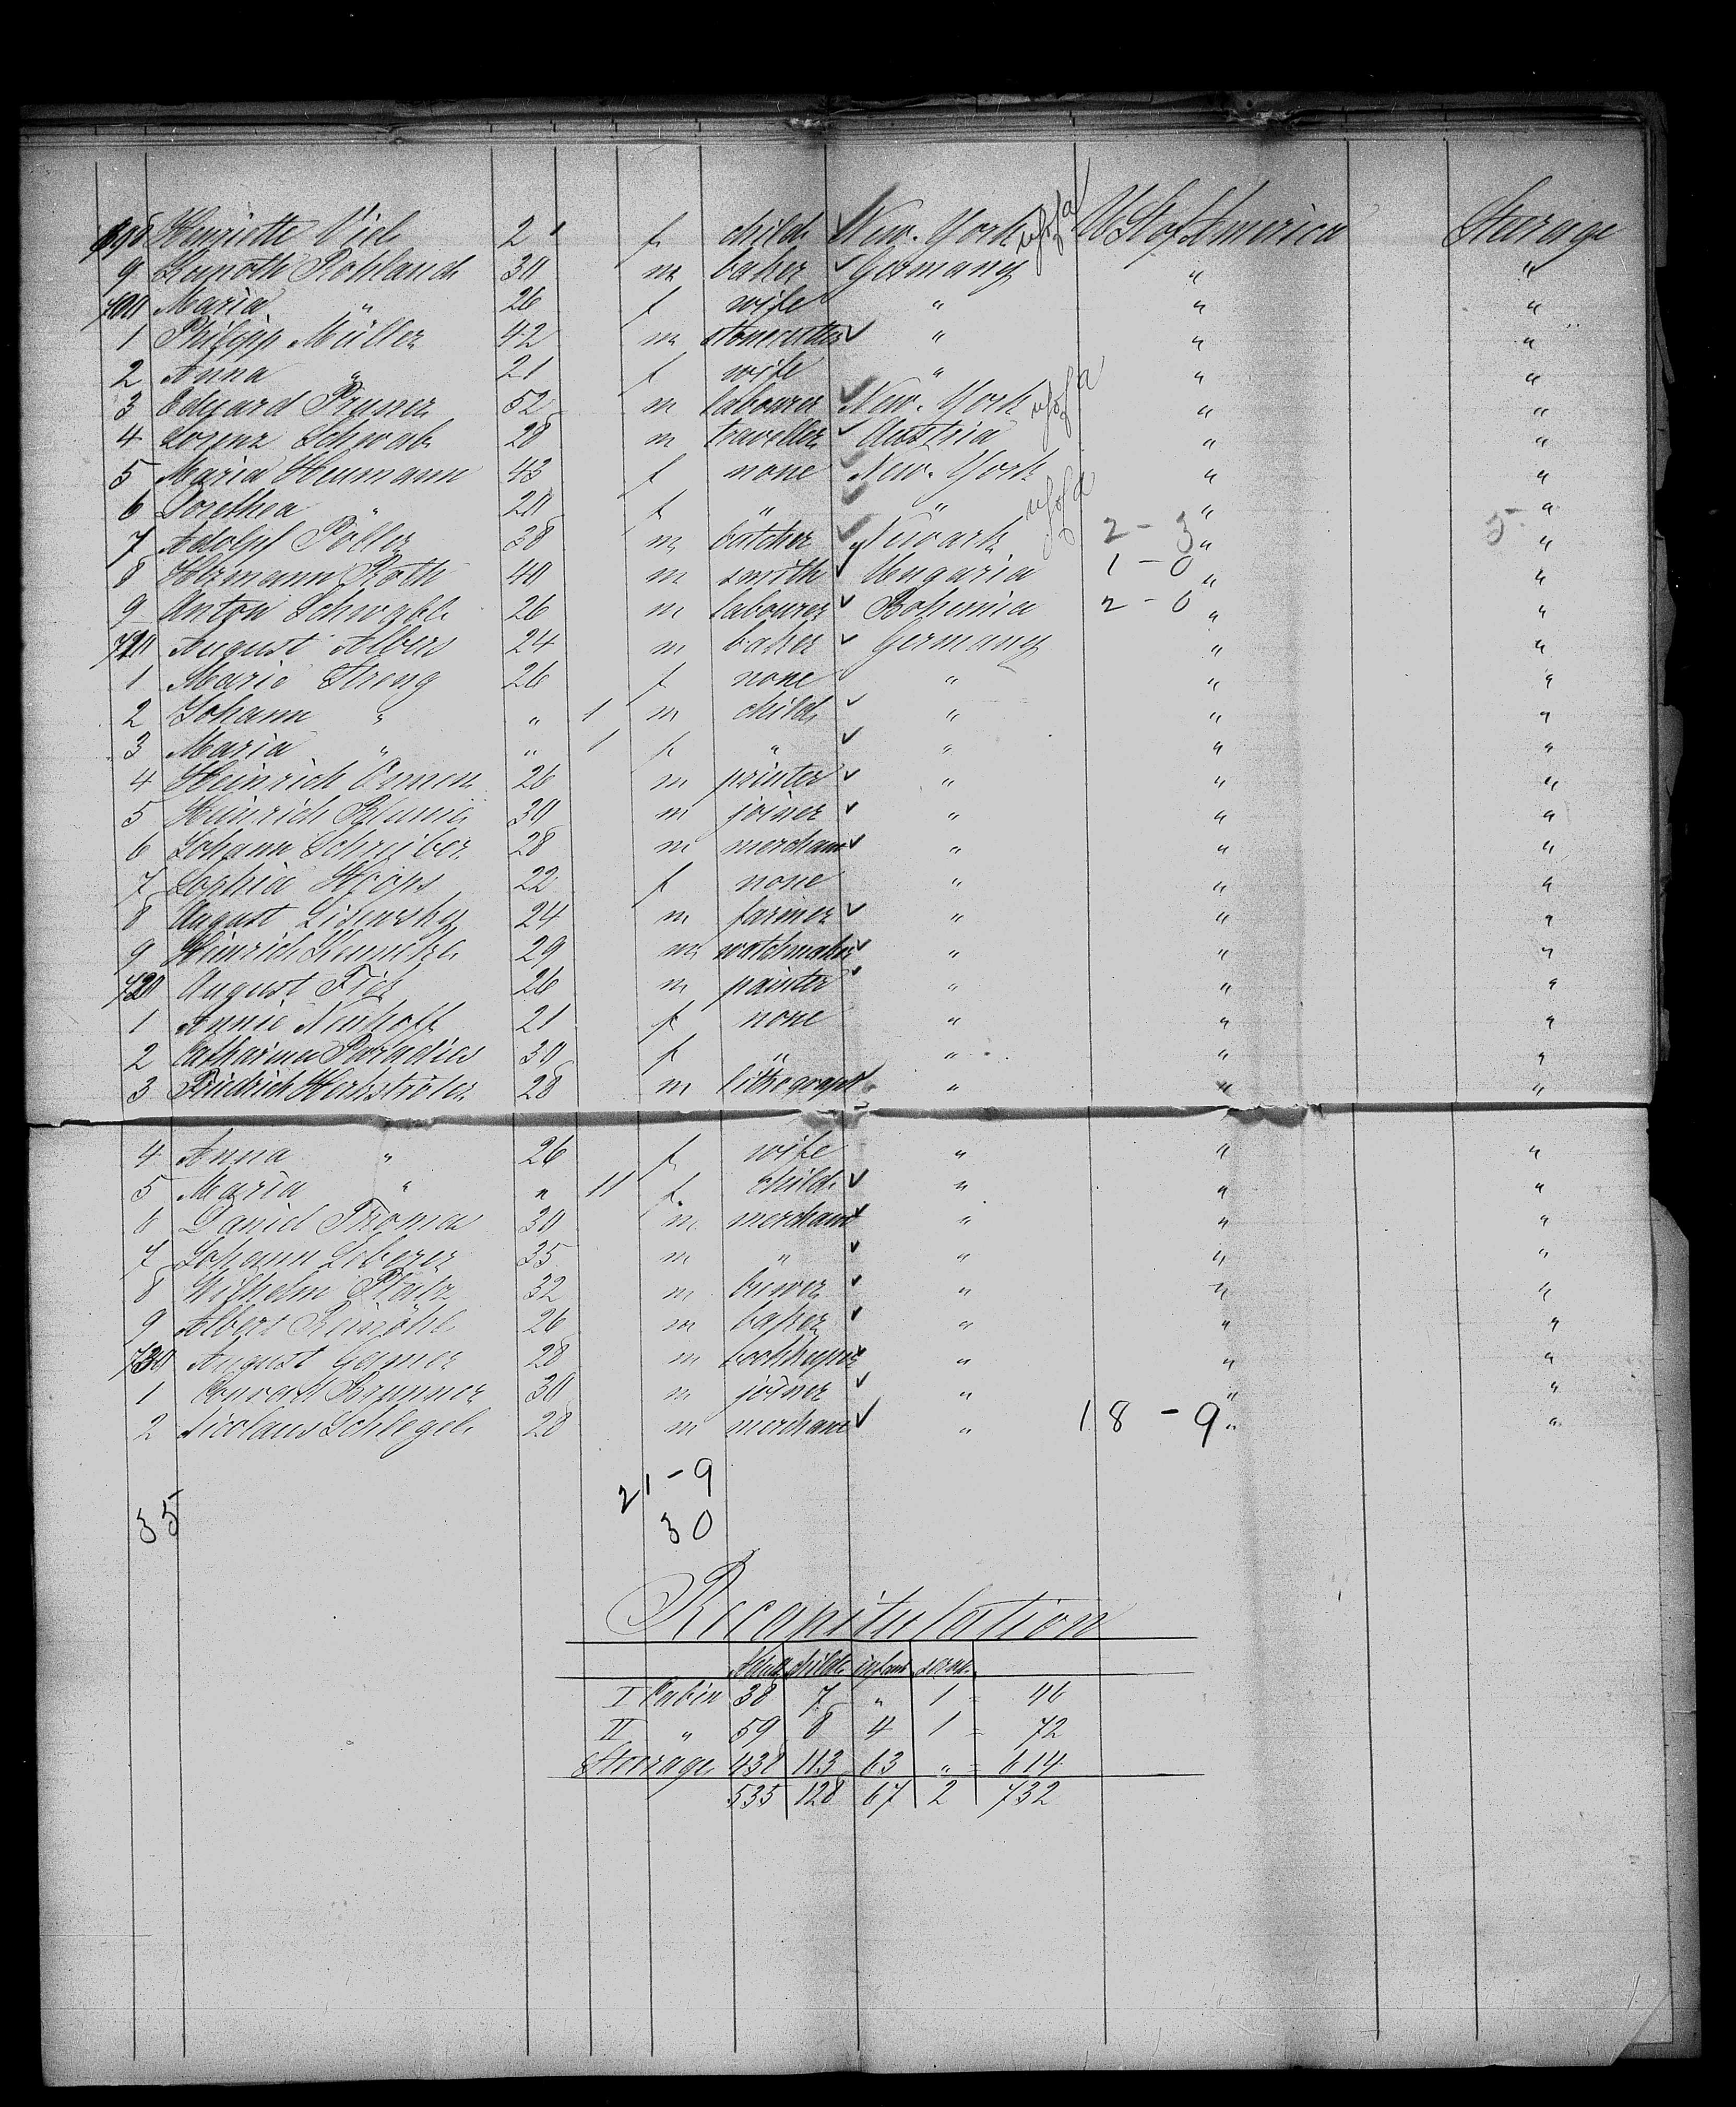 698 Henriette Viel 2 " f child New-York U.S. of A. U St of America Steerage
9 Rohland 30 m baker Germany " "
700 Maria " 26 f wife " " "
1 Philipp Müller 42 m stonecutter " " "
2 Anna " 21 f wife " " "
3 Eduard Pruner 52 m labourer New-York U.S. of A " "
4 Lorenz Schwab 28 m traveller Austria " "
5 Maria Heumann 43 f none New-York " "
6 Dorothea " 20 f " " U.S. of A " "
7 Adolph Poller 38 m butcher Newark 2 - 3 " 5 "
8 Roth 40 m smith Ungaria 1 - 0 " "
9 Anton Schwabl 26 m labourer Bohemia 2 - 0 " "
710 August Albers 24 m baker Germany " "
1 Marie Streng 26 f none " " "
2 Johann " " 1 m child " " "
3 Maria " " 1 f " " " "
4 Heinrich 26 m printer " " "
5 Heinrich Blume 30 m joiner " " "
6 Johann Schreiber 28 m merchant " " "
7 Sophie Hoops 22 f none " " "
8 August 24 m farmer " " "
9 Heinrich 29 m watchmaker " " "
720 August 26 m painter " " "
1 Annie Neuhoff 21 f none " " "
2 Catharina Paradies 30 f " " " "
3 Friedrich Herbströter 28 m lithograph " " "
4 Anna " 26 f wife " " "
5 Maria " " 11 f child " " "
6 Daniel Thomas 30 m merchant " " "
7 Johann 35 m " " " "
8 Wilhelm 32 m brewer " " "
9 Albert 26 m baker " " "
730 August 28 m bookkeeper " " "
1 Conrad Brunner 30 m joiner " " "
2 Nicolaus Schlegel 28 m merchant " 18 - 9 " "
21 - 9
35 30
Recapitulation
Adults childr infant
I Cabin 38 7 " 1 = 46
II " 59 8 4 1 = 72
Steerage 438 113 63 " = 614
535 128 67 2 732